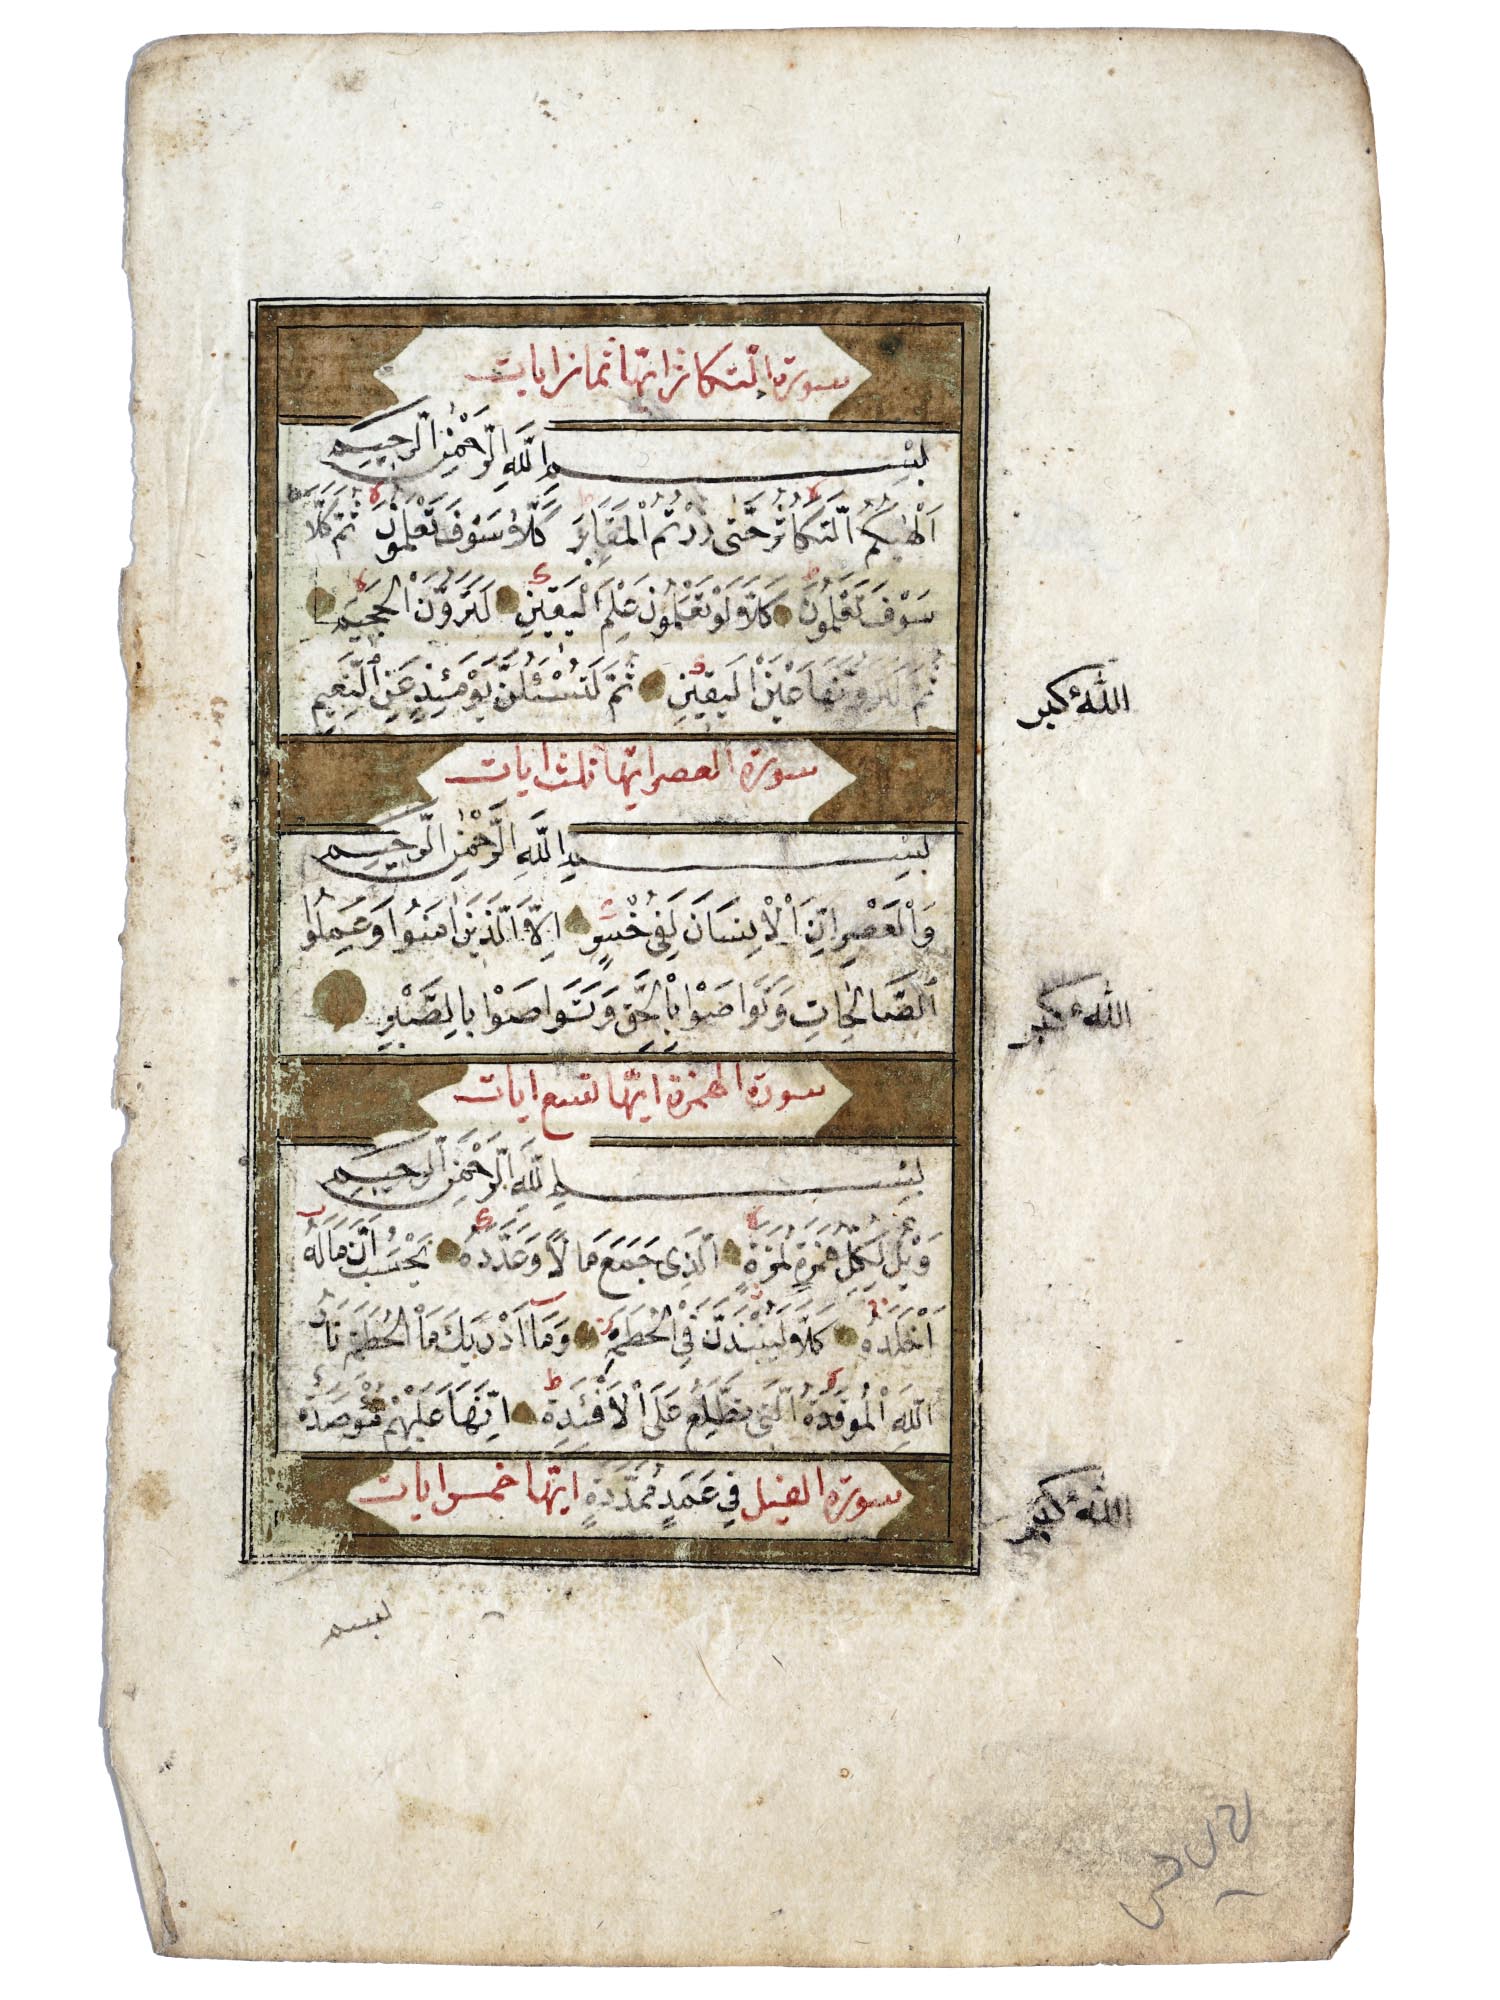 سورة التكاثر ايتها ثمان ايات
بِسْمِ اللّٰهِ الرَّحْمٰنِ الرَّحِيمِ
اَلْهٰيكُمُ التَّكَاثُرُ حَتّٰى زُرْتُمُ الْمَقَابِرَ كَلَّا سَوْفَ تَعْلَمُونَ ثُمَّ كَلَّا
سَوْفَ تَعْلَمُونَ كَلَّا لَوْ تَعْلَمُونَ عِلْمَ الْيَقِينِ لَتَرَوُنَّ الْجَحِيمَ
ثُمَّ لَتَرَوُنَّهَا عَيْنَ الْيَقِينِ ثُمَّ لَتُسْئَلُنَّ يَوْمَئِذٍ عَنِ النَّعِيمِ
الله اكبر
سورة العصر ايتها ثلث ايات
بِسْمِ اللّٰهِ الرَّحْمٰنِ الرَّحِيمِ
وَالْعَصْرِ اِنَّ الْاِنسَانَ لَفِى خُسْرٍ اِلَّا الَّذِينَ اٰمَنُوا وَعَمِلُوا
الصَّالِحَاتِ وَتَوَاصَوْا بِالْحَقِّ وَتَوَاصَوْا بِالصَّبْرِ
الله اكبر
سورة الهمزة ايتها تسع ايات
بِسْمِ اللّٰهِ الرَّحْمٰنِ الرَّحِيمِ
وَيْلٌ لِكُلِّ هُمَزَةٍ لُمَزَةٍ اَلَّذِى جَمَعَ مَالًا وَعَدَّدَهُ يَحْسَبُ اَنَّ مَالَهُ
اَخْلَدَهُ كَلَّا لَيُنْبَذَنَّ فِى الْحُطَمَةِ وَمَا اَدْرٰيكَ مَا الْحُطَمَةُ نَارُ
اللّٰهِ الْمُوقَدَةُ الَّتِى تَطَّلِعُ عَلَى الْاَفْئِدَةِ اِنَّهَا عَلَيْهِمْ مُؤْصَدَةٌ
سورة الفيل فِى عَمَدٍ مُمَدَّدَةٍ ايتها خمس ايات
الله اكبر
بسم